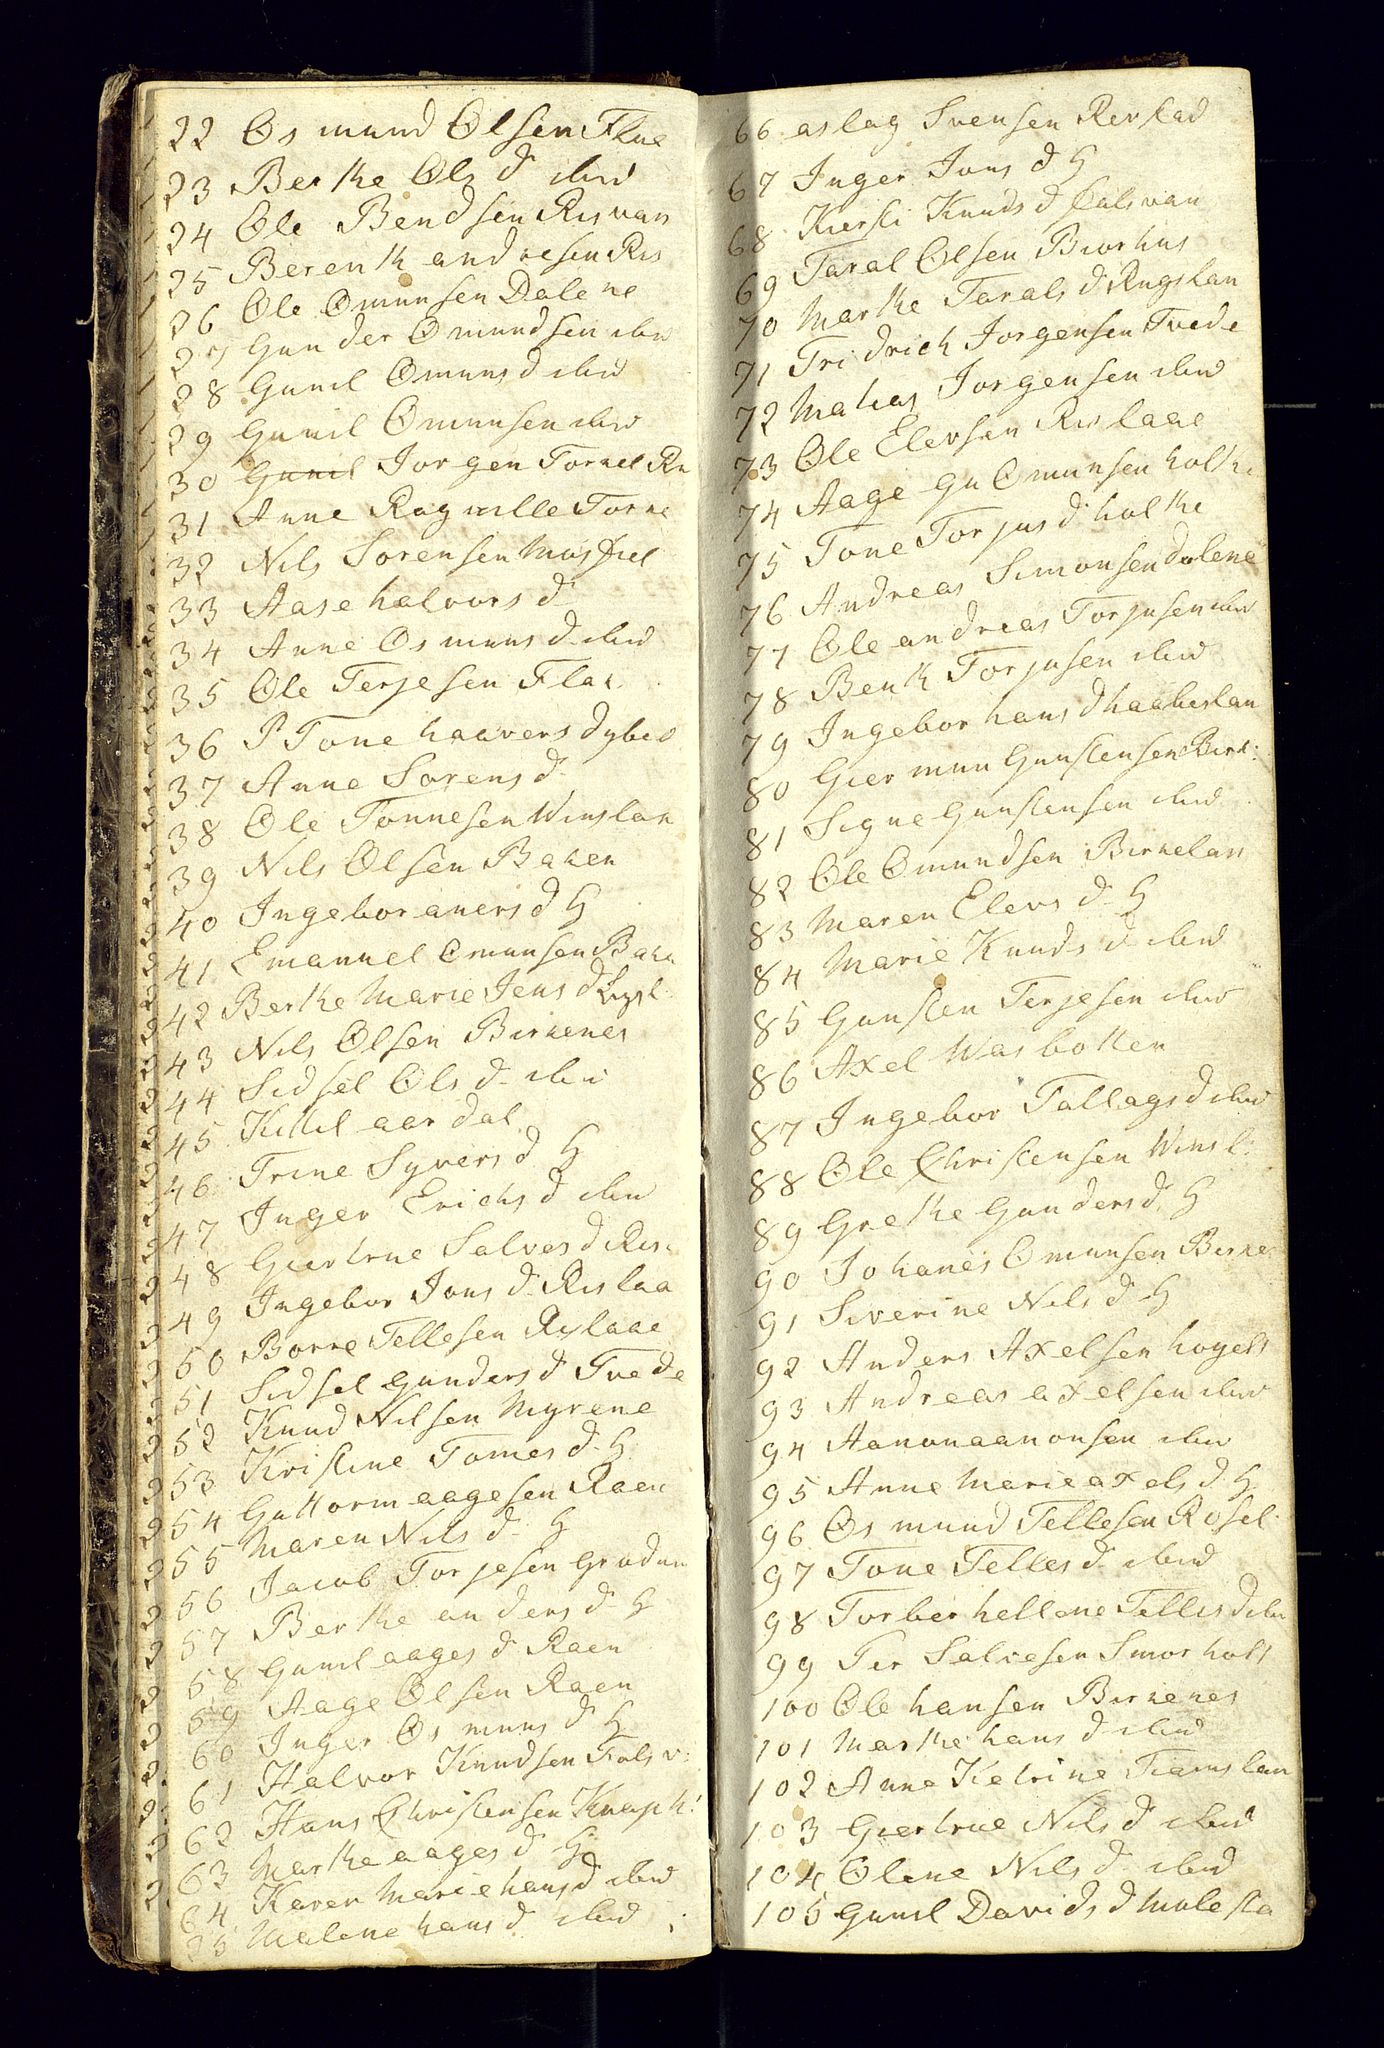 22 Osmund Olsen Flae
23 Berthe Ols d ibid
24 Ole Bendsen Risvan
25 Berenth andresen Ris
26 Ole Omunsen Dalene
27 Gunder Omundsen ibid
28 Gunil Omuns d ibid
29 Gunil Omunsen ibid
30 Jorgen Tornel Rn
31 Anne Ragnille Torne
32 Nils Sorensen Mosfiel
33 Aase halvors d
34 Anne Osmuns d ibid
35 Ole Terjesen Flak
36 P Tone haavers dybes
37 Anne Sorens d
38 Ole Tonnesen Winslan
39 Nils Olsen Baken
40 Ingebor aners d H
41 Emanuel Omunsen Baken
42 Berthe Marie Jens d
43 Nils Olsen Birkenes
44 Sidsel Ols d ibid
45 Kittil aardal
46 Trine Syvers d H
47 Inger Erichs d ibid
48 Giertrue Salves d Ris
49 Ingebor Jons d Rislaa
50 Borre Tellesen Rylaae
51 Sidsel Gunders d Tvede
52 Knud Nilsen Myrene
53 Kristine Tomes d H
54 Guttorm aagesen Raen
55 Maren Nils d H
56 Jacob Torjesen Grodum
57 Berthe anders d H
58 Gunil aages d Raen
59 Aage Olsen Raen
60 Inger Osmuns d H
61 Halvor Knudsen Fals v:
62 Hans Christensen Knaph:
63 Marthe aages d H
64 Karen Marie hans d ibid
65 Malene hans d ibid
66 aslag Svensen Revstad
67 Inger Jons d H
68 Kiersti Knuds d Falsvan
69 Taral Olsen Biorhus
70 Marthe Tarals d Rugslan
71 Fridrich Jorgensen Tvede
72 Matias Jorgensen ibid
73 Ole Elevsen Rislaae
74 Aage Gu Omunsen holthe
75 Tone Torjus d holthe
76 Andreas Simonsen dalene
77 Ole andreas Torjusen ibid
78 Benth Torjusen ibid
79 Ingebor hans d haabeslan
80 Giermun Gunstensen Birk:
81 Signe Gunstensen ibid
82 Ole Omundsen Birkelan
83 Maren Elevs d H
84 Marie Knuds d ibid
85 Gunsten Terjesen ibid
86 Axel Wasbotten
87 Ingebor Tallags d ibid
88 Ole Christensen Winsl:
89 Grethe Gunders d H
90 Johanes Omunsen Birkes
91 Siverine Nils d H
92 Anders Axelsen hogelt
93 Andreas axelsen ibid
94 Aanonaanonsen ibid
95 Anne Marie axels d H
96 Osmund Tellesen Rosel
97 Tone Telles d ibid
98 Torber hellene Tellis d ibi
99 Per Salvesen Smorholt
100 Ole hansen Birkenes
101 Marthe hans d ibid
102 Anne Ketrine Tamslan
103 Giertrue Nils d ibid
104 Olene Nils d ibid
105 Gunil Davids d Molesta